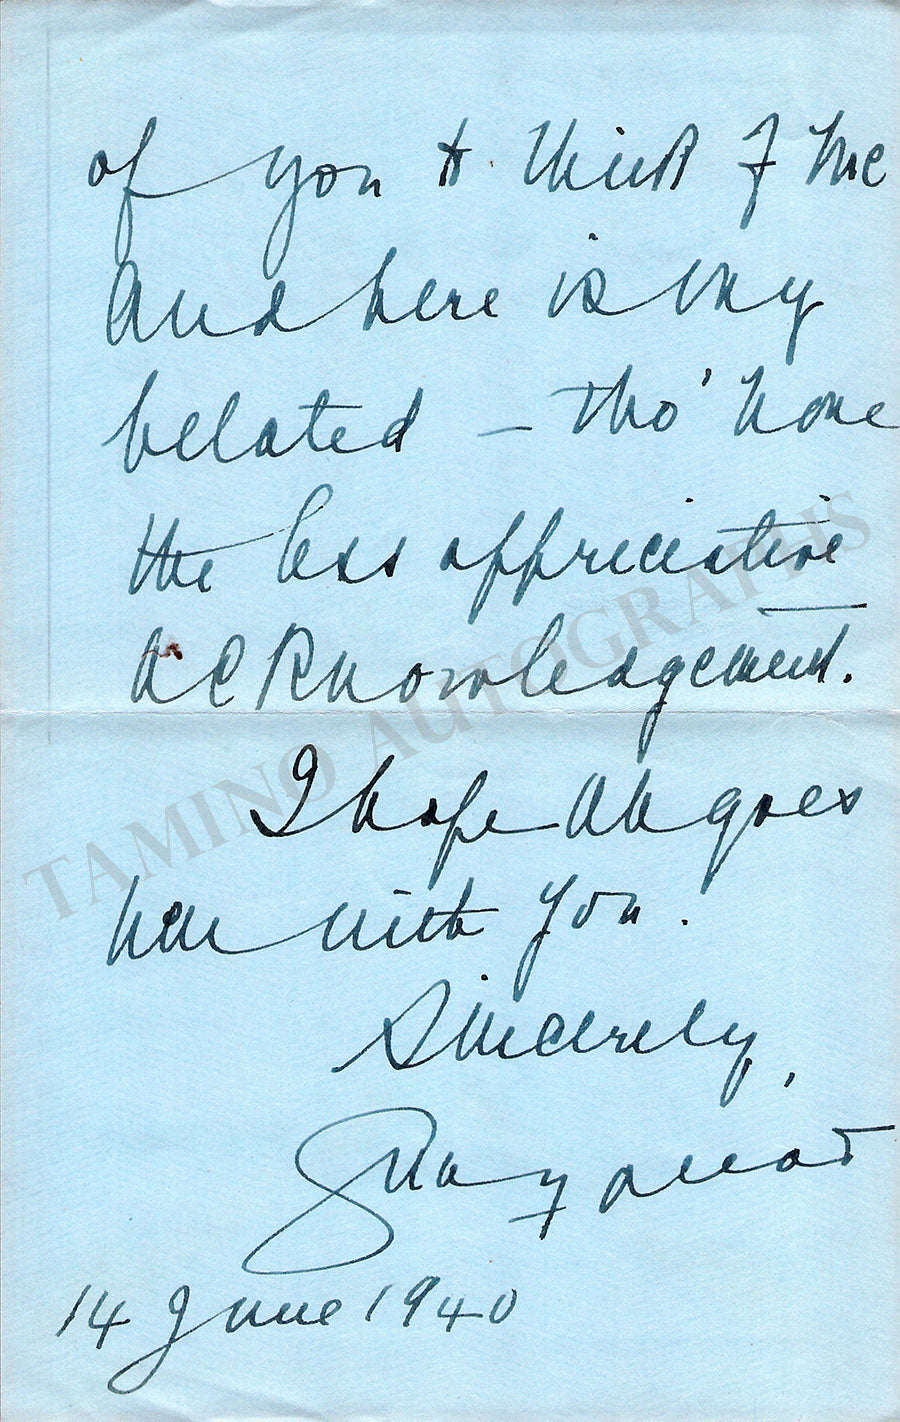 of you to think of me
And here is my
belated — tho' none
the less appreciative
acknowledgement.
I hope all goes
well with you.
Sincerely,
14 June 1940
TAMINO AUTOGRAPHS